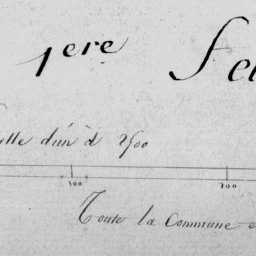 1ere Fe
elle d'un à 2500
100 200
Toute la Commune e